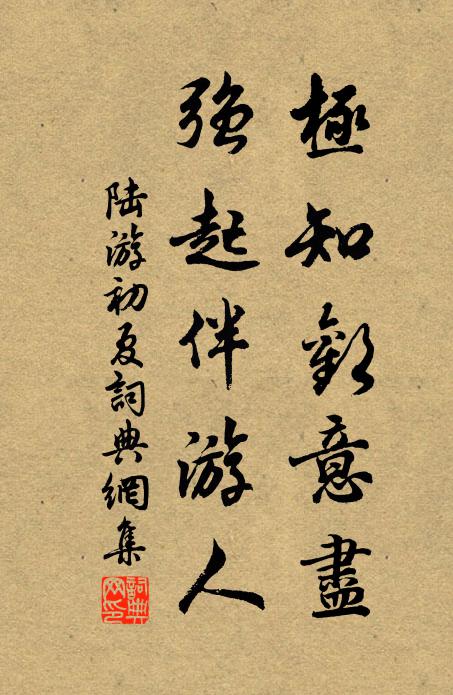 極知歡意盡
强起伴游人
陆游初夏詞典網集
詞典网印